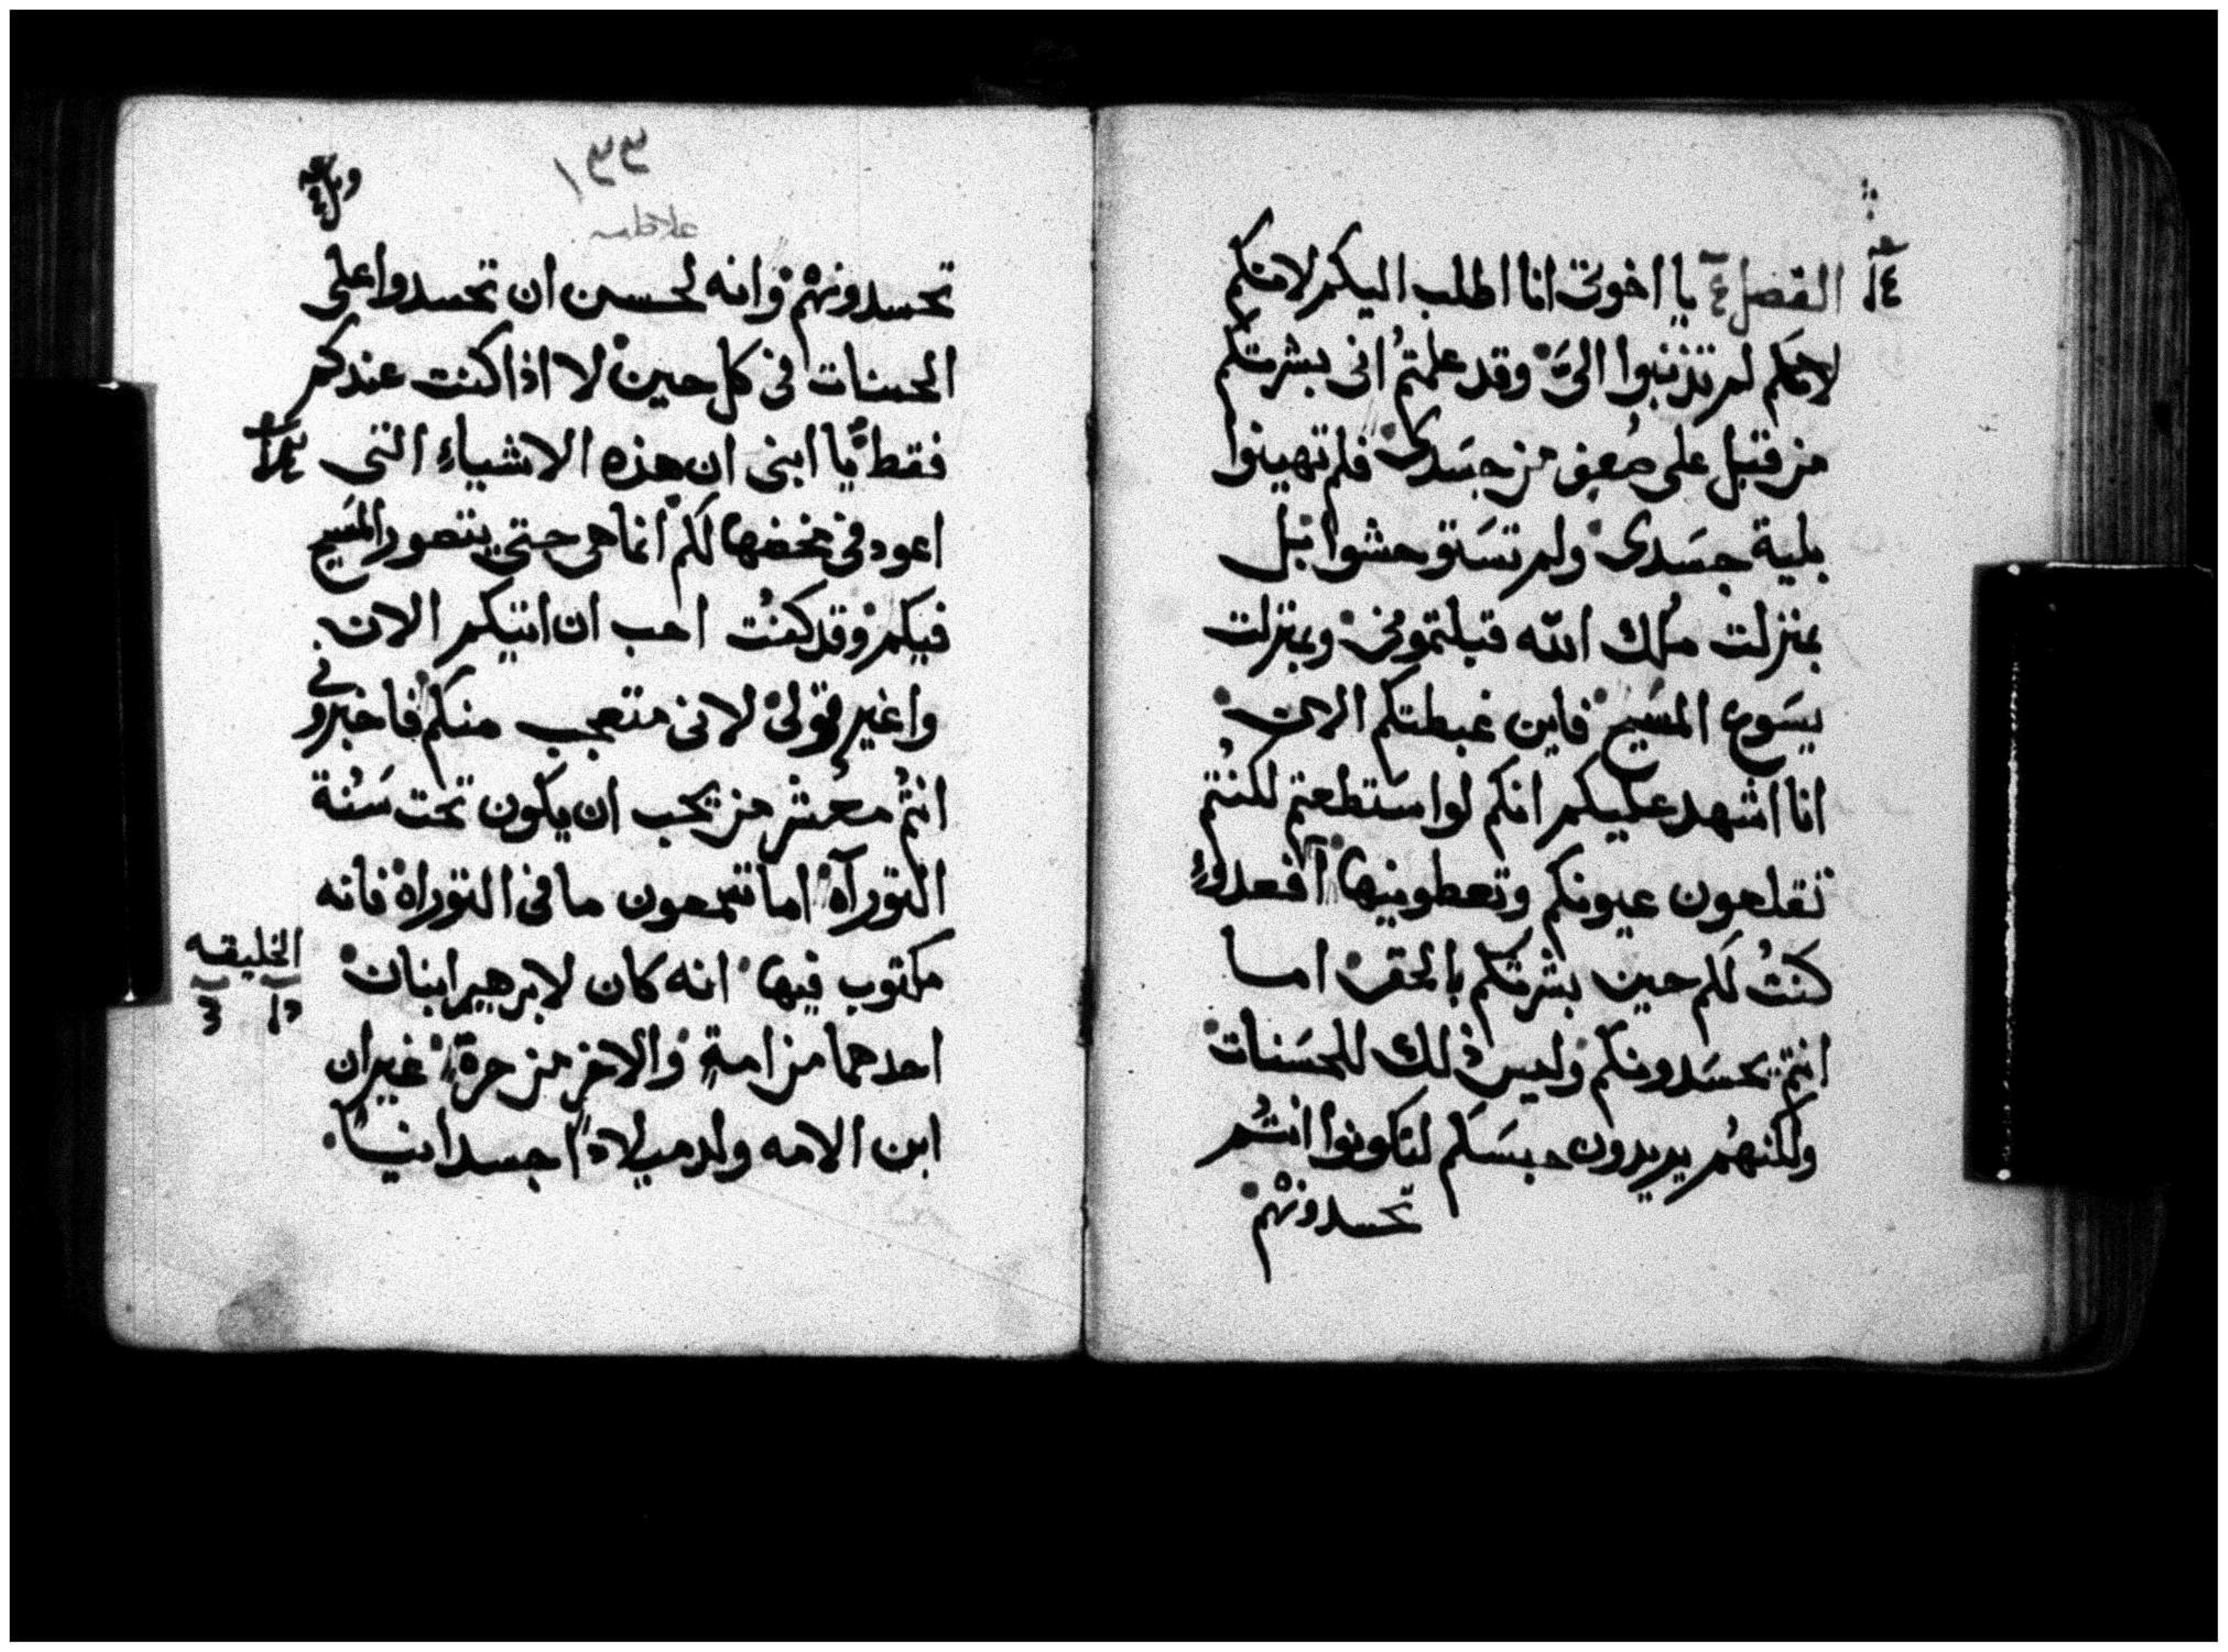 الفصل ٤ يا اخوتى انا اطلب اليكم لامنكم
لانكم لم تذنبوا الىَّ وقد علمتمُ انى بشرتكم
من قبل على ضُعفٍ من جسَدى فلم تهينوا
بلية جسَدى ولم تسَتوحشوا بل
بمنزلت ملاك الله قبلتمونى وبمنزلت
يسَوع المسَيح فاين غبطتكم الان
انا اشهد عليكم انكم لو اسَتطعتم لكنتُم
تقلعون عيونكم وتعطونيها افعدوًا
كنتُ لكم حين بشرتكم بالحق اما
انتم يحسَدونكم وليس ذلك للحسَنات
ولكنهُم يريدون حبسَكم لتكونوا انتمُ
تحسدونهم
١٣٣
تحسدونهم وانه لحسن ان تحسدوا على
الحسنات فى كل حين لا اذا كنت عندكم
فقط يا ابنى ان هذه الاشياء التى
اعود فى مخضها لكم انما هى حتى يتصور المسَيح
فيكم وقد كنتُ احب ان اتيكم الان
واغير قولى لانى متعجب منكم فاخبرونى
انتمُ معشر من يحب ان يكون تحت سَنُة
التوراة اما تسمعون ما فى التوراة فانه
مكتوب فيها انه كان لابرهيم ابنان
الخليقه
احدهما من امةٍ والاخر من حرةٍ غير ان
ابن الامه ولد ميلادًا جسدانيًا